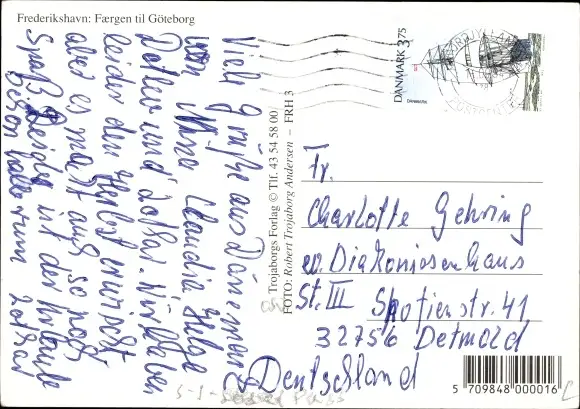 Frederikshavn: Færgen til Göteborg
Viele Grüße aus Dänemark
von Nina Claudia Helge
Detlev und Lothar. Wir haben
leider den Herbst erwischt
aber es macht auch so noch
Spaß. Leider ist der Urlaub
schon halb rum Lothar
Trojaborgs Forlag © Tlf. 43 54 58 00
FOTO: Robert Trojaborg Andersen – FRH 3
DANMARK 3.75
DANMARK
Fr.
Charlotte Gehring
ev. Diakonissenhaus
St. III Sofienstr. 41
32756 Detmold
Deutschland
5 709848 000016